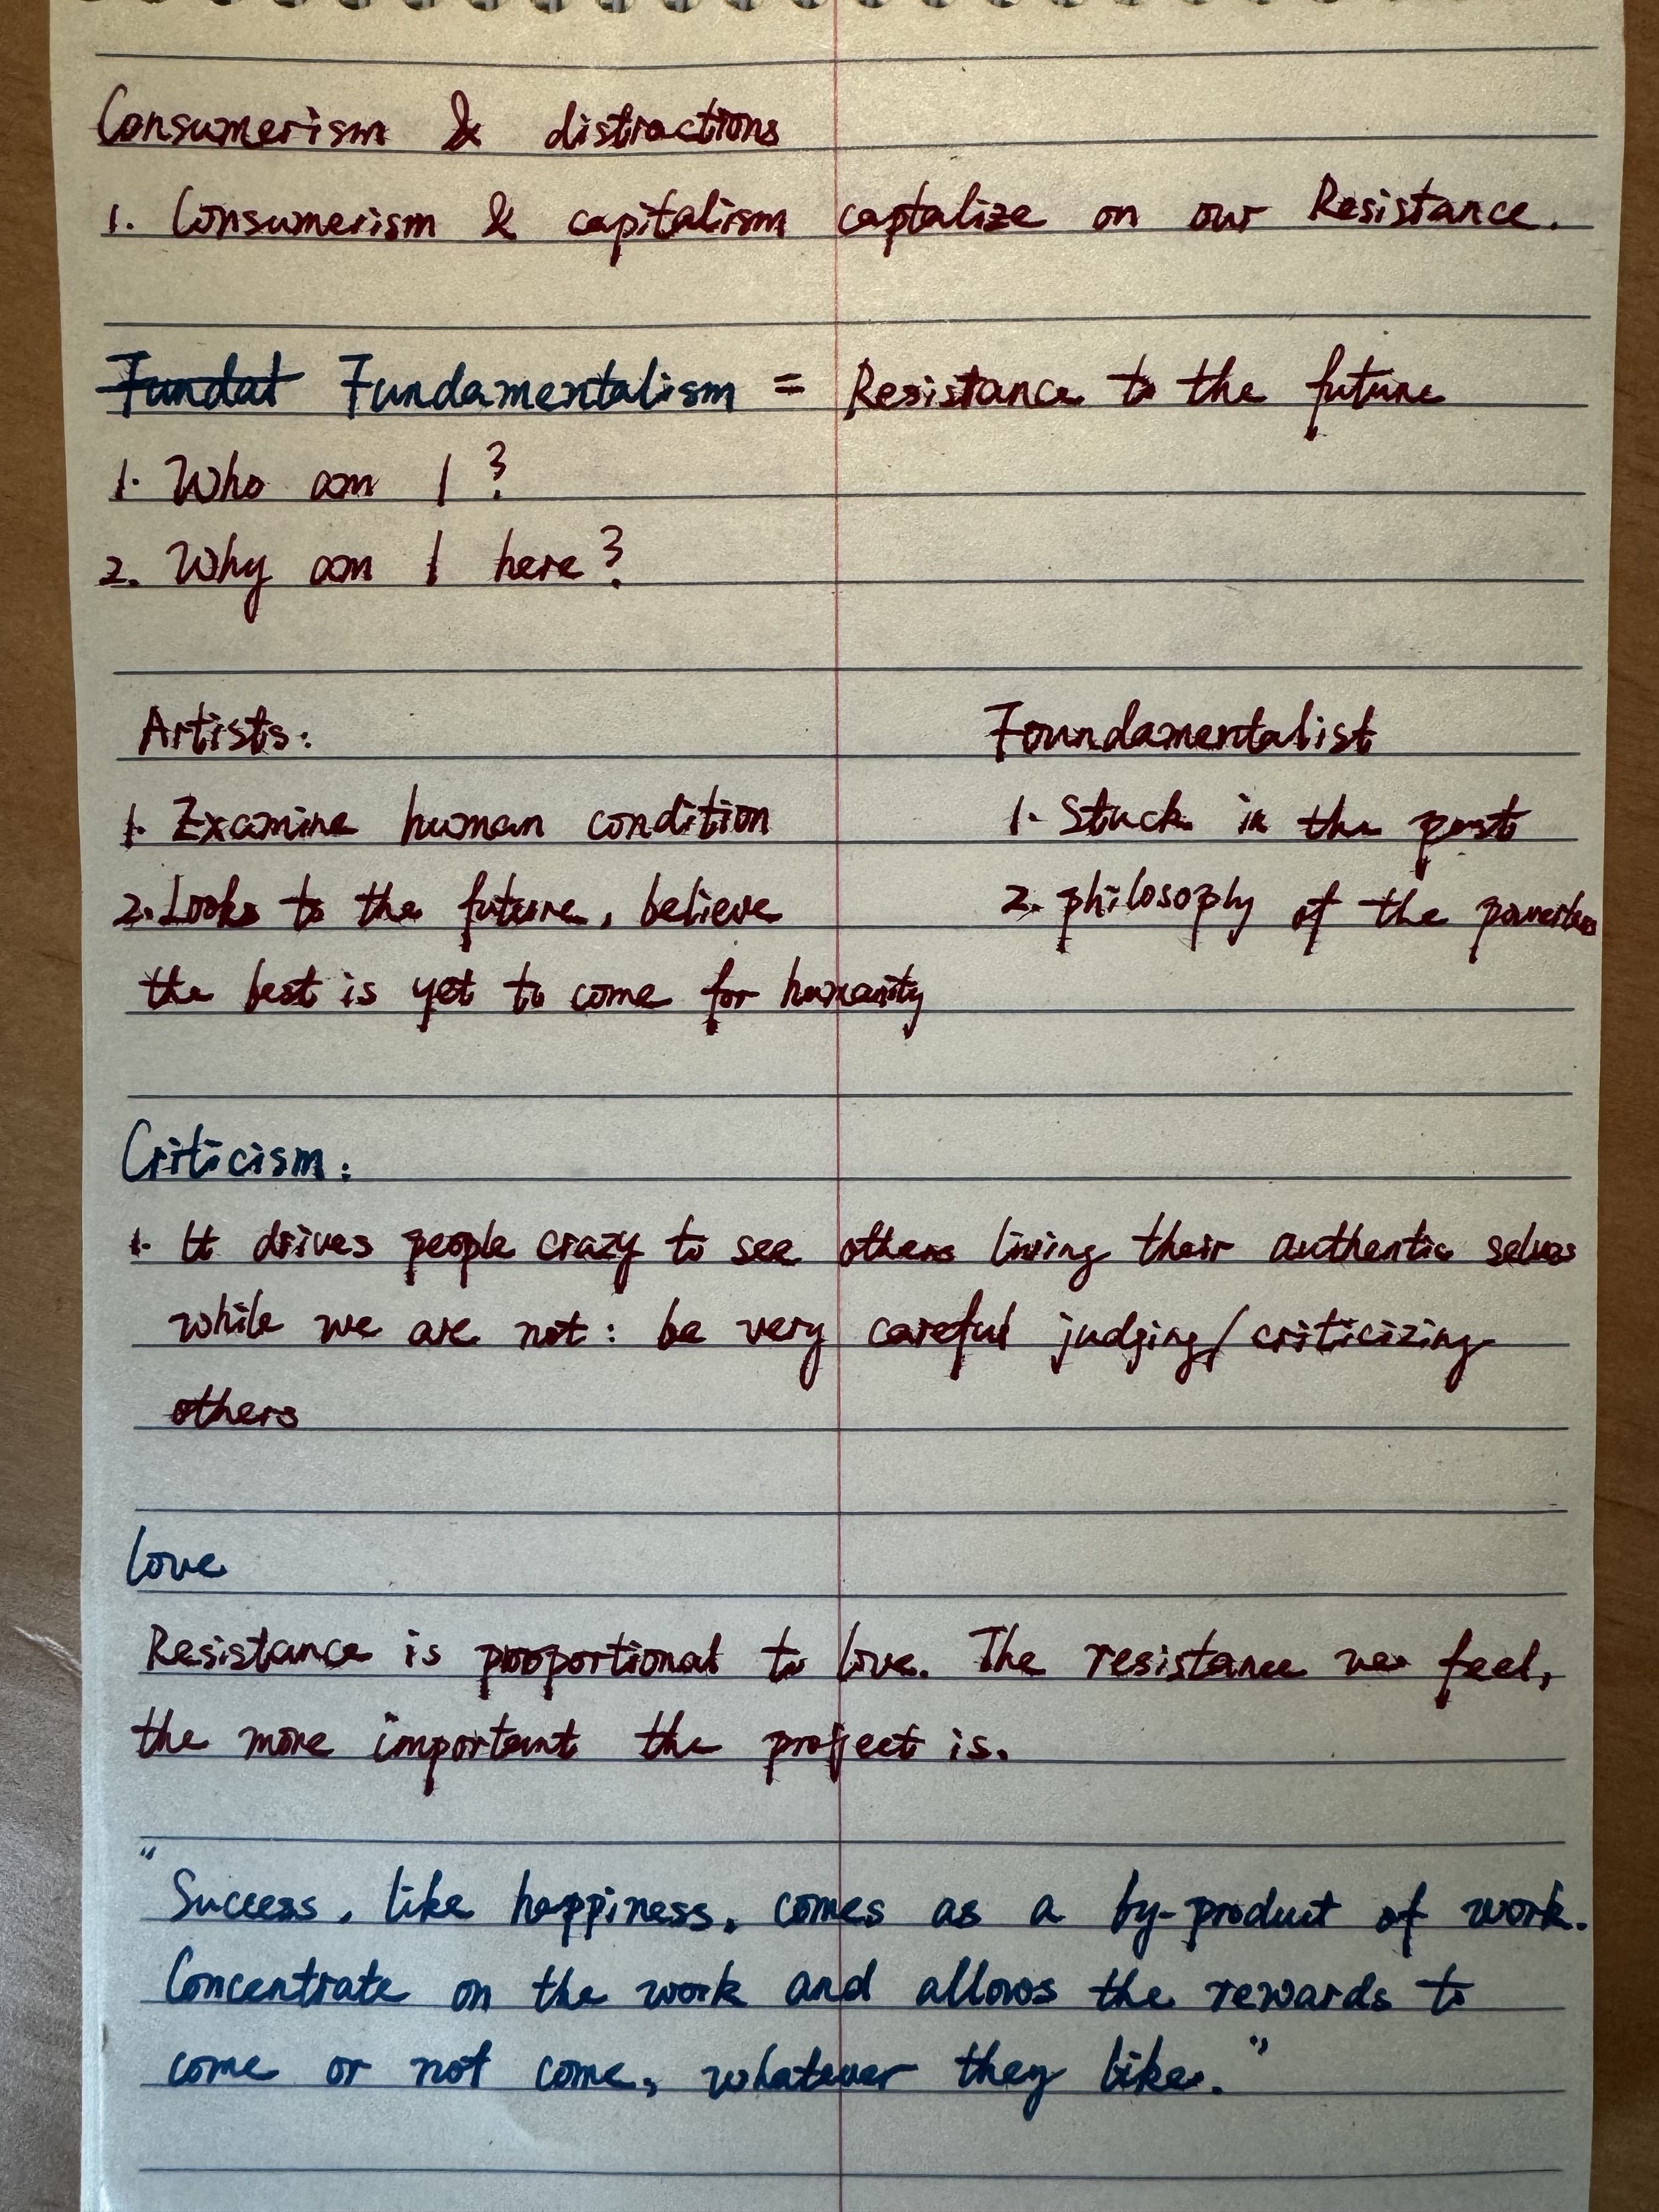 Consumerism & distractions
1. Consumerism & capitalism captalize on our Resistance.
Fundat Fundamentalism = Resistance to the future
1. Who am I ?
2. Why am I here?
Artists:
1. Examine human condition
2. Looks to the future, believe
the best is yet to come for humanity
Foundamentalist
1. Stuck in the past
2. philosophy of the powerless
Criticism:
1. It drives people crazy to see others living their authentic selves
while we are not: be very careful judging/criticizing
others
Love
Resistance is proportional to love. The resistance we feel,
the more important the project is.
"Success, like happiness, comes as a by-product of work.
Concentrate on the work and allows the rewards to
come or not come, whatever they like."